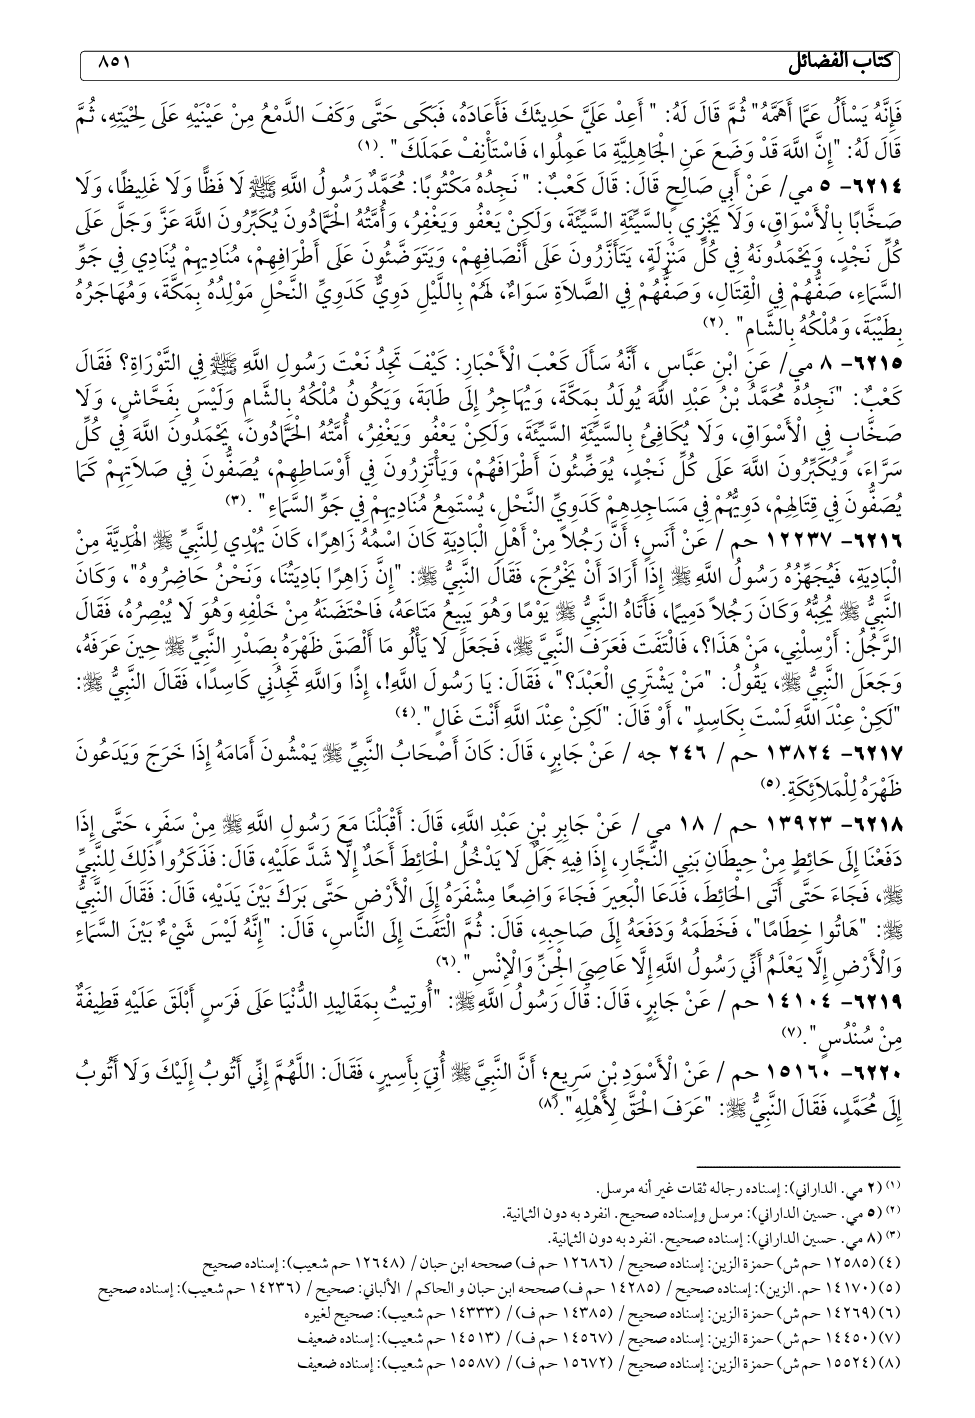 كتاب الفضائل ٨٥١
فَإِنَّهُ يَسْأَلُ عَمَّا أَهَمَّهُ" ثُمَّ قَالَ لَهُ: " أَعِدْ عَلَيَّ حَدِيثَكَ فَأَعَادَهُ، فَبَكَى حَتَّى وَكَفَ الدَّمْعُ مِنْ عَيْنَيْهِ عَلَى لِحْيَتِهِ، ثُمَّ
قَالَ لَهُ: "إِنَّ اللَّهَ قَدْ وَضَعَ عَنِ الْجَاهِلِيَّةِ مَا عَمِلُوا، فَاسْتَأْنِفْ عَمَلَكَ" .(١)
٦٢١٤- ٥ مي/ عَنْ أَبِي صَالِحٍ قَالَ: قَالَ كَعْبٌ: " نَجِدُهُ مَكْتُوبًا: مُحَمَّدٌ رَسُولُ اللَّهِ ﷺ لَا فَظًّا وَلَا غَلِيظًا، وَلَا
صَخَّابًا بِالْأَسْوَاقِ، وَلَا يَجْزِي بِالسَّيِّئَةِ السَّيِّئَةَ، وَلَكِنْ يَعْفُو وَيَغْفِرُ، وَأُمَّتُهُ الْحَمَّادُونَ يُكَبِّرُونَ اللَّهَ عَزَّ وَجَلَّ عَلَى
كُلِّ نَجْدٍ، وَيَحْمَدُونَهُ فِي كُلِّ مَنْزِلَةٍ، يَتَأَزَّرُونَ عَلَى أَنْصَافِهِمْ، وَيَتَوَضَّئُونَ عَلَى أَطْرَافِهِمْ، مُنَادِيهِمْ يُنَادِي فِي جَوِّ
السَّمَاءِ، صَفُّهُمْ فِي الْقِتَالِ، وَصَفُّهُمْ فِي الصَّلَاةِ سَوَاءٌ، لَهُمْ بِاللَّيْلِ دَوِيٌّ كَدَوِيِّ النَّحْلِ مَوْلِدُهُ بِمَكَّةَ، وَمُهَاجَرُهُ
بِطَيْبَةَ، وَمُلْكُهُ بِالشَّامِ" .(٢)
٦٢١٥- ٨ مي/ عَنِ ابْنِ عَبَّاسٍ ، أَنَّهُ سَأَلَ كَعْبَ الْأَحْبَارِ: كَيْفَ تَجِدُ نَعْتَ رَسُولِ اللَّهِ ﷺ فِي التَّوْرَاةِ؟ فَقَالَ
كَعْبٌ: "نَجِدُهُ مُحَمَّدُ بْنُ عَبْدِ اللَّهِ يُولَدُ بِمَكَّةَ، وَيُهَاجِرُ إِلَى طَابَةَ، وَيَكُونُ مُلْكُهُ بِالشَّامِ وَلَيْسَ بِفَحَّاشٍ، وَلَا
صَخَّابٍ فِي الْأَسْوَاقِ، وَلَا يُكَافِئُ بِالسَّيِّئَةِ السَّيِّئَةَ، وَلَكِنْ يَعْفُو وَيَغْفِرُ، أُمَّتُهُ الْحَمَّادُونَ، يَحْمَدُونَ اللَّهَ فِي كُلِّ
سَرَّاءَ، وَيُكَبِّرُونَ اللَّهَ عَلَى كُلِّ نَجْدٍ، يُوَضِّئُونَ أَطْرَافَهُمْ، وَيَأْتَزِرُونَ فِي أَوْسَاطِهِمْ، يُصَفُّونَ فِي صَلَاتِهِمْ كَمَا
يُصَفُّونَ فِي قِتَالِهِمْ، دَوِيُّهُمْ فِي مَسَاجِدِهِمْ كَدَوِيِّ النَّحْلِ، يُسْتَمِعُ مُنَادِيهِمْ فِي جَوِّ السَّمَاءِ" .(٣)
٦٢١٦- ١٢٢٣٧ حم / عَنْ أَنَسٍ؛ أَنَّ رَجُلاً مِنْ أَهْلِ الْبَادِيَةِ كَانَ اسْمُهُ زَاهِرًا، كَانَ يُهْدِي لِلنَّبِيِّ ﷺ الْهَدِيَّةَ مِنْ
الْبَادِيَةِ، فَيُجَهِّزُهُ رَسُولُ اللَّهِ ﷺ إِذَا أَرَادَ أَنْ يَخْرُجَ، فَقَالَ النَّبِيُّ ﷺ: "إِنَّ زَاهِرًا بَادِيَتُنَا، وَنَحْنُ حَاضِرُوهُ"، وَكَانَ
النَّبِيُّ ﷺ يُحِبُّهُ وَكَانَ رَجُلاً دَمِيمًا، فَأَتَاهُ النَّبِيُّ ﷺ يَوْمًا وَهُوَ يَبِيعُ مَتَاعَهُ، فَاحْتَضَنَهُ مِنْ خَلْفِهِ وَهُوَ لَا يُبْصِرُهُ، فَقَالَ
الرَّجُلُ: أَرْسِلْنِي، مَنْ هَذَا؟، فَالْتَفَتَ فَعَرَفَ النَّبِيَّ ﷺ، فَجَعَلَ لَا يَأْلُو مَا أَلْصَقَ ظَهْرَهُ بِصَدْرِ النَّبِيِّ ﷺ حِينَ عَرَفَهُ،
وَجَعَلَ النَّبِيُّ ﷺ، يَقُولُ: "مَنْ يَشْتَرِي الْعَبْدَ؟"، فَقَالَ: يَا رَسُولَ اللَّهِ!، إِذًا وَاللَّهِ تَجِدُنِي كَاسِدًا، فَقَالَ النَّبِيُّ ﷺ:
"لَكِنْ عِنْدَ اللَّهِ لَسْتَ بِكَاسِدٍ"، أَوْ قَالَ: "لَكِنْ عِنْدَ اللَّهِ أَنْتَ غَالٍ".(٤)
٦٢١٧- ١٣٨٢٤ حم / ٢٤٦ جه / عَنْ جَابِرٍ، قَالَ: كَانَ أَصْحَابُ النَّبِيِّ ﷺ يَمْشُونَ أَمَامَهُ إِذَا خَرَجَ وَيَدَعُونَ
ظَهْرَهُ لِلْمَلَائِكَةِ.(٥)
٦٢١٨- ١٣٩٢٣ حم / ١٨ مي / عَنْ جَابِرِ بْنِ عَبْدِ اللَّهِ، قَالَ: أَقْبَلْنَا مَعَ رَسُولِ اللَّهِ ﷺ مِنْ سَفَرٍ، حَتَّى إِذَا
دَفَعْنَا إِلَى حَائِطٍ مِنْ حِيطَانِ بَنِي النَّجَّارِ، إِذَا فِيهِ جَمَلٌ لَا يَدْخُلُ الْحَائِطَ أَحَدٌ إِلَّا شَدَّ عَلَيْهِ، قَالَ: فَذَكَرُوا ذَلِكَ لِلنَّبِيِّ
ﷺ، فَجَاءَ حَتَّى أَتَى الْحَائِطَ، فَدَعَا الْبَعِيرَ فَجَاءَ وَاضِعًا مِشْفَرَهُ إِلَى الْأَرْضِ حَتَّى بَرَكَ بَيْنَ يَدَيْهِ، قَالَ: فَقَالَ النَّبِيُّ
ﷺ: "هَاتُوا خِطَامًا"، فَخَطَمَهُ وَدَفَعَهُ إِلَى صَاحِبِهِ، قَالَ: ثُمَّ الْتَفَتَ إِلَى النَّاسِ، قَالَ: "إِنَّهُ لَيْسَ شَيْءٌ بَيْنَ السَّمَاءِ
وَالْأَرْضِ إِلَّا يَعْلَمُ أَنِّي رَسُولُ اللَّهِ إِلَّا عَاصِيَ الْجِنِّ وَالْإِنْسِ".(٦)
٦٢١٩- ١٤١٠٤ حم / عَنْ جَابِرٍ، قَالَ: قَالَ رَسُولُ اللَّهِ ﷺ: "أُوتِيتُ بِمَقَالِيدِ الدُّنْيَا عَلَى فَرَسٍ أَبْلَقَ عَلَيْهِ قَطِيفَةٌ
مِنْ سُنْدُسٍ".(٧)
٦٢٢٠- ١٥١٦٠ حم / عَنْ الْأَسْوَدِ بْنِ سَرِيعٍ؛ أَنَّ النَّبِيَّ ﷺ أُتِيَ بِأَسِيرٍ، فَقَالَ: اللَّهُمَّ إِنِّي أَتُوبُ إِلَيْكَ وَلَا أَتُوبُ
إِلَى مُحَمَّدٍ، فَقَالَ النَّبِيُّ ﷺ: "عَرَفَ الْحَقَّ لِأَهْلِهِ".(٨)
(١) (٢ مي. الداراني): إسناده رجاله ثقات غير أنه مرسل.
(٢) (٥ مي. حسين الداراني): مرسل وإسناده صحيح. انفرد به دون الثمانية.
(٣) (٨ مي. حسين الداراني): إسناده صحيح. انفرد به دون الثمانية.
(٤) (١٢٥٨٥ حم ش) حمزة الزين: إسناده صحيح / (١٢٦٨٦ حم ف) صححه ابن حبان / (١٢٦٤٨ حم شعيب): إسناده صحيح
(٥) (١٤١٧٠ حم. الزين): إسناده صحيح / (١٤٢٨٥ حم ف) صححه ابن حبان و الحاكم / الألباني: صحيح / (١٤٢٣٦ حم شعيب): إسناده صحيح
(٦) (١٤٢٦٩ حم ش) حمزة الزين: إسناده صحيح / (١٤٣٨٥ حم ف) / (١٤٣٣٣ حم شعيب): صحيح لغيره
(٧) (١٤٤٥٠ حم ش) حمزة الزين: إسناده صحيح / (١٤٥٦٧ حم ف) / (١٤٥١٣ حم شعيب): إسناده ضعيف
(٨) (١٥٥٢٤ حم ش) حمزة الزين: إسناده صحيح / (١٥٦٧٢ حم ف) / (١٥٥٨٧ حم شعيب): إسناده ضعيف